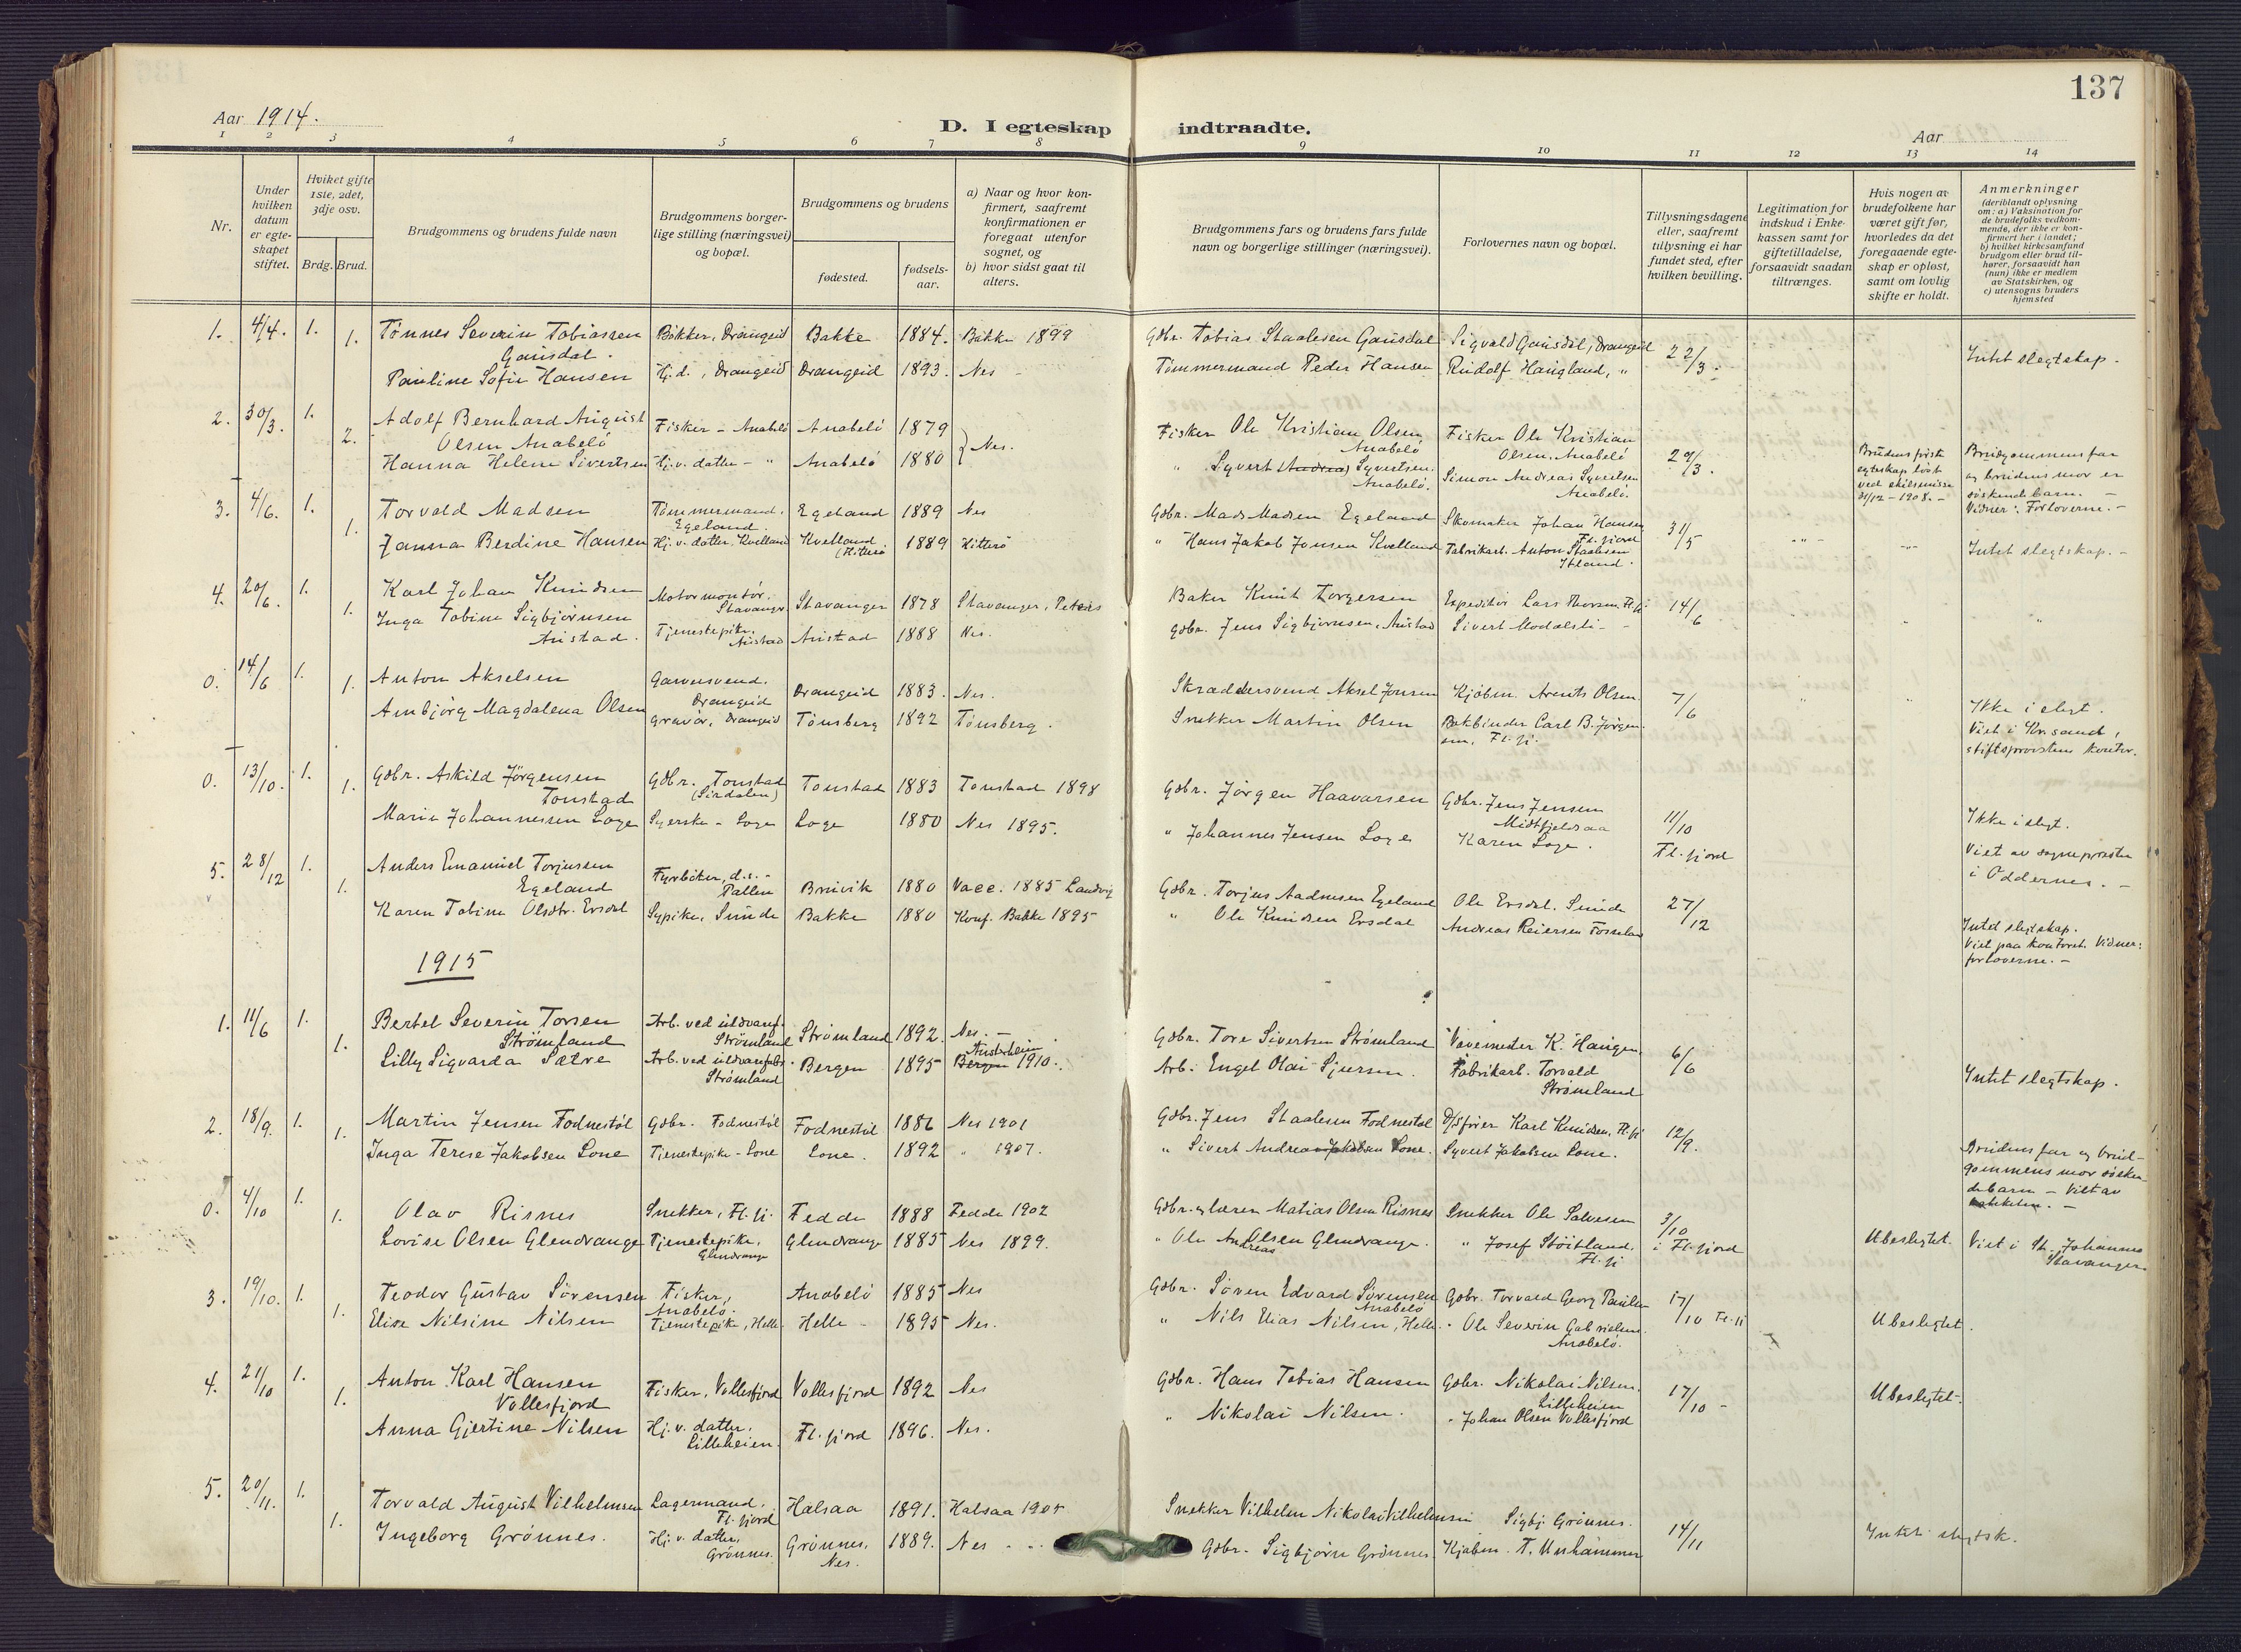 137
Aar 1914.
D. I egteskap indtraadte.
Aar
1 2 3 4 5 6 7 8 9 10 11 12 13 14
Nr.
Under hvilken datum er egteskapet stiftet.
Hviket gifte 1ste, 2det, 3dje osv.
Brdg. Brud.
Brudgommens og brudens fulde navn
Brudgommens borgerlige stilling (næringsvei) og bopæl.
Brudgommens og brudens
fødested.
fødselsaar.
a) Naar og hvor konfirmert, saafremt konfirmationen er foregaat utenfor sognet, og
b) hvor sidst gaat til alters.
Brudgommens fars og brudens fars fulde navn og borgerlige stillinger (næringsvei).
Forlovernes navn og bopæl.
Tillysningsdagene eller, saafremt tillysning ei har fundet sted, efter hvilken bevilling.
Legitimation for indskud i Enkekassen samt for giftetilladelse, forsaavidt saadan tiltrænges.
Hvis nogen av brudefolkene har været gift før, hvorledes da det foregaaende egteskap er opløst, samt om lovlig skifte er holdt.
Anmerkninger (deriblandt oplysning om: a) Vaksination for de brudefolks vedkommende, der ikke er konfirmert her i landet; b) hvilket kirkesamfund brudgom eller brud tilhører, forsaavidt han (hun) ikke er medlem av Statskirken, og c) utensogns bruders hjemsted
1. 4/4. 1. Tønnes Severin Tobiassen Bakker, Drangeid Bakke 1884. Bakke 1899 Gdbr. Tobias Staalesen Gausdal Sigvald Gausdal, Drangeid 22/3. Intet slegtskap.
Gausdal.
1. Pauline Sofie Hansen Hj.d., Drangeid Drangeid 1893. Nes - Tømmermand Peder Hansen Rudolf Haugland, "
2. 30/3. 1. Adolf Bernhard August Fisker - Anabelö Anabelö 1879 Nes. Fisker Ole Kristian Olsen Fisker Ole Kristian 29/3.
Olsen Anabelö Anabelö Olsen, Anabelö
2. Hanna Helene Sivertsen Hj.v. datter - " Anabelö 1880 " Syvert Andreas Syvertsen. Simon Andreas Syvertsen
Anabelö. Anabelö.
Brudens første egteskap løst ved skilsmisse 31/12 - 1908. -
Brudgommens far og brudens mor er søskendebarn. - Vidner: Forloverne. -
3. 4/6. 1. Torvald Madsen Tømmermand. Egeland. Egeland 1889 Nes Gdbr. Mads Madsen Egeland Skomaker Johan Hansen Fl.fjord 31/5
1. Janna Berdine Hansen Hj.v. datter, Kvelland Kvelland (Hitterö 1889 Hitterö " Hans Jakob Jonsen Kvelland Fabrikarb. Anton Staalesen Intet slegtskap. -
4. 20/6. 1. Karl Johan Knudsen Motormontör. Stavanger Stavanger 1878 Stavanger, Petris Baker Knut Torgersen Expeditör Lars Thorsen. Fl.fj. 14/6
1. Inga Tobine Sigbjørnsen Tjenestepike, Austad Austad 1888 Nes. Gdbr. Jens Sigbjørnsen, Austad Sivert Modalsli -
Austad.
0. 14/6 1. Anton Akselsen Garversvend. Drangeid Drangeid 1883. Nes. Skræddersvend Aksel Jonsen Kjöbm. Arents Olsen. 7/6 Ikke i slegt.
1. Ambjörg Magdalena Olsen Gravör, Drangeid Tönsberg 1892 Tönsberg. Snekker Martin Olsen Bokbinder Carl B. Jörgensen, Fl.fj. Viet i Kr.sand, stiftsprovsten kontor.
0. 13/10. 1. Gdbr. Askild Jörgensen Gdbr. Tonstad (Sirdalen) Tonstad 1883 Tonstad 1898 Gdbr. Jörgen Haavarsen Gdbr. Jens Jensen 11/10 Ikke i slegt.
Tonstad Midtfjeldsaa Fl.fjord
1. Marie Johannessen Loge Syerske - Loge Loge 1880 Nes 1895. " Johannes Jensen Loge Karen Loge. Viet av sogneprest i Oddernes. -
5. 28/12 1. Anders Emanuel Torjusen Fyrböter, d.s. - Pallen Bruvik 1880 Vacc. 1885 Landvig Gdbr. Torjus Aadnesen Egeland Ole Ersdal, Sunde 27/12
Egeland
1. Karen Tobine Olsdtr. Ersdal Sypike, Sunde Bakke 1880 Konf. Bakke 1895 " Ole Knudsen Ersdal Andreas Reiersen Fosseland Intet slegtskap. Viet paa kontoret. Vidner: forloverne. -
1915
1. 11/6 1. Bertel Severin Torsen Arb. ved uldvaref. Strømland Strømland 1892. Nes. - Gdbr. Tore Sivertsen Strømland Vævemester K. Haugen. 6/6
Strømland
1. Lilly Sigvarda Sætre Arb. ved uldvarefabr. Strømland Bergen 1895 Bergen Austrheim 1910. Arb. Engel Olai Sjursen. Fabrikarb. Torvald Strømland Intet slegtskap.
2. 18/9. 1. Martin Jensen Fodnestöl Gdbr. Fodnestöl Fodnestöl 1886 Nes 1901 Gdbr. Jens Staalesen Fodnestöl D/Sfører Karl Knudsen, Fl.fj 12/9.
1. Inga Terese Jakobsen Lone Tjenestepike - Lone Lone. 1892 " 1907. " Sivert Andreas Jakobsen Lone. Syvert Jakobsen Lone. Brudens far og brudgommens mor söskendebarn - Viet av
0. 4/10 1. Olav Risnes Snekker, Fl.fj. Fedde 1888 Fedde 1902 Gdbr. og lærer Matias Olsen Risnes Snekker Ole Salvesen 3/10 i Fl.fjord
1. Lovise Olsen Glendrange Tjenestepike, Glendrange Glendrange 1885 Nes 1899. " Ole Andreas Olsen Glendrange. " Josef Stöitland. Fl.fj Ubeslegtet. Viet i St. Johannes Stavanger
3. 19/10. 1. Teodor Gustav Sörensen Fisker, Anabelö. Anabelö 1885 Nes Gdbr. Sören Edvard Sörensen Anabelö Gdbr. Torvald Georg Paulsen 17/10 Fl.fj
1. Elise Nilsine Nilsen Tjenestepike, Helle. Helle - 1895 Nes. " Nils Elias Nilsen, Helle " Ole Severin Gabrielsen. Anabelö. Ubeslegtet.
4. 21/10 1. Anton Karl Hansen Fisker, Vollesfjord Vollesfjord 1892 Nes Gdbr. Hans Tobias Hansen Gdbr. Nikolai Nilsen. Lilleheien 17/10 - Ubeslegtet.
Vollesfjord
1. Anna Gjertine Nilsen Hj.v. datter, Lilleheien. Fl.fjord 1896. Nes. " Nikolai Nilsen. " Johan Olsen Vollesfjord
5. 20/11. 1. Torvald August Vilhelmsen Lagermand. Fl.fjord Halsaa 1891. Halsaa 1905 Snekker Vilhelm Nikolai Vilhelmsen Sigbj. Grönnes. 14/11
1. Ingeborg Grönnes. Hj.v. datter, Grönnes. Grönnes, Nes. 1889. Nes - Gdbr. Sigbjörn Grönnes. Kjöbm. T. Unhammer Intet slegtsk.